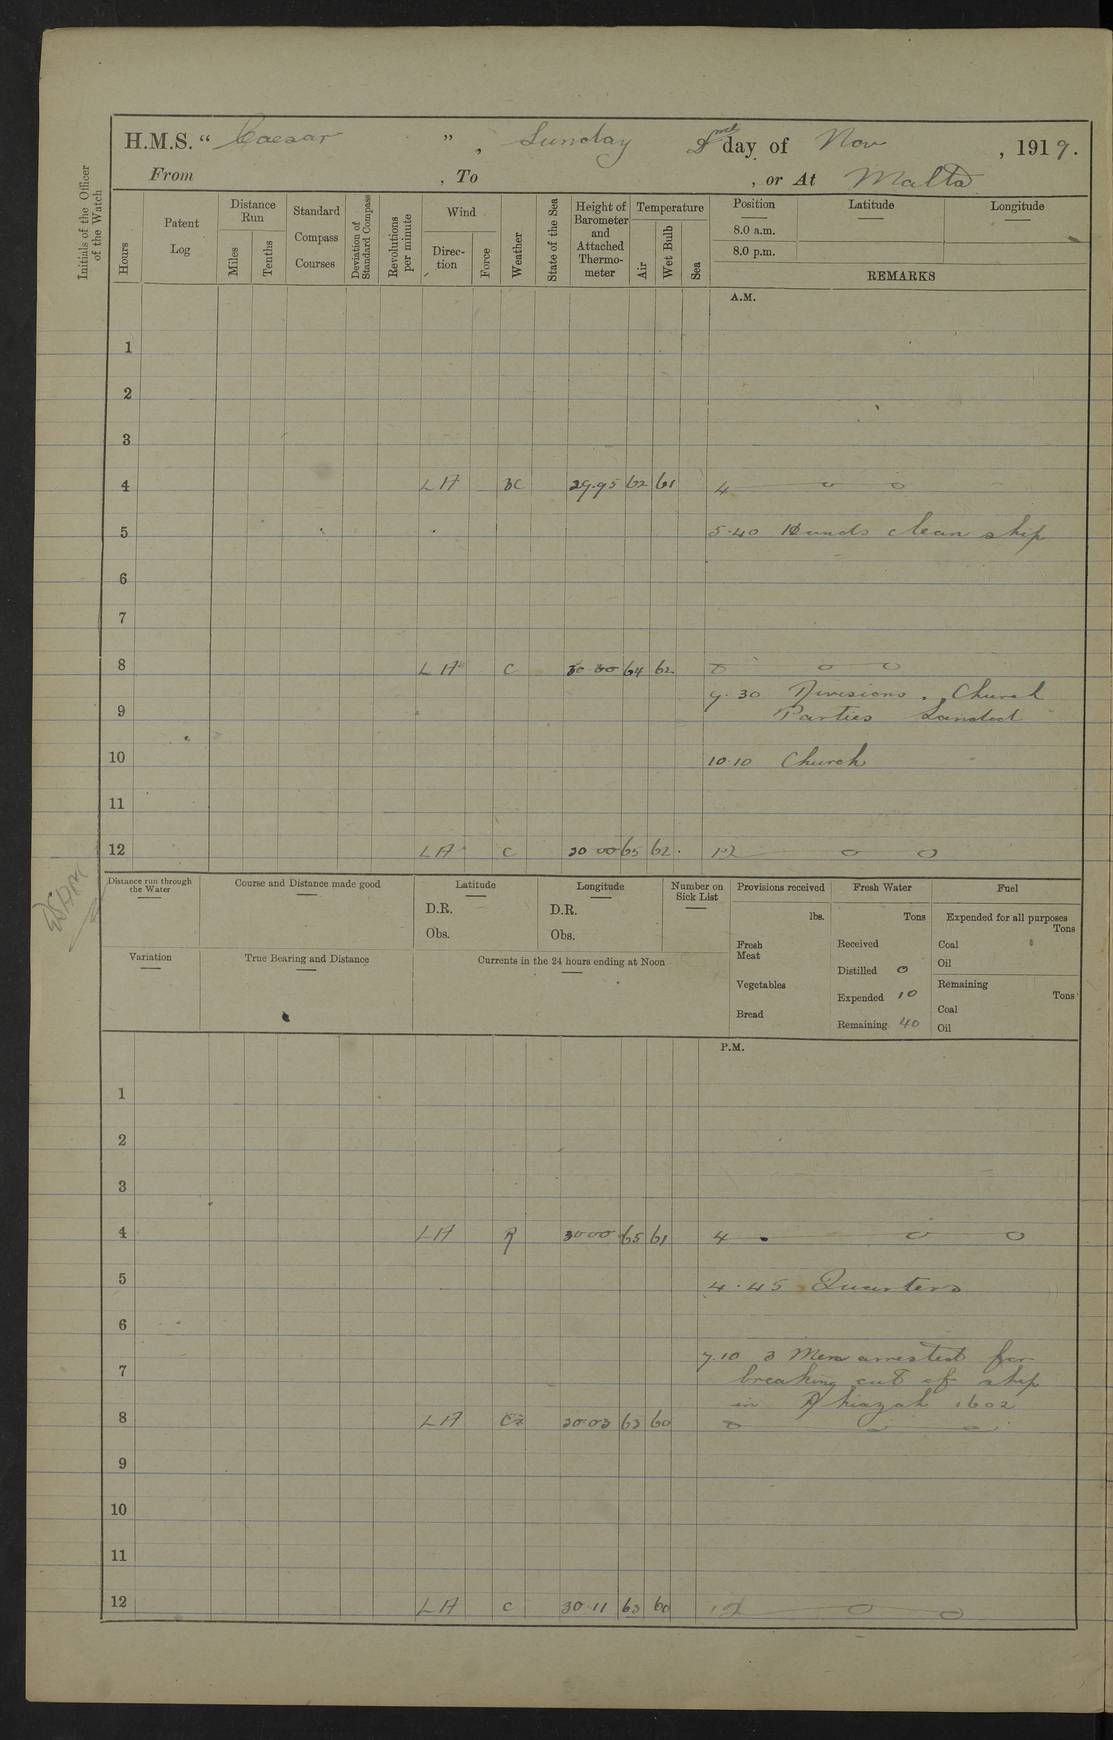 H.M.S. “ Caesar ”, Sunday 2nd day of Nov , 1919.
From , To , or At Malta
Initials of the Officer of the Watch
Hours
Patent Log
Distance Run
Miles
Tenths
Standard Compass Courses
Deviation of Standard Compass
Revolutions per minute
Wind
Direction
Force
Weather
State of the Sea
Height of Barometer and Attached Thermometer
Temperature
Air
Wet Bulb
Sea
Position Latitude Longitude
8.0 a.m.
8.0 p.m.
REMARKS
A.M.
1
2
3
4 LA BC 29.95 62 61 4 o o
5 5.40 Hands clean ship
6
7
8 LA C 30 00 64 62 8 o o
9.30 Divisions. Church
9 Parties Landed
10 10.10 Church
11
12 LA C 30 00 65 62. 12 o o
Distance run through the Water
Course and Distance made good
Latitude
D.R.
Obs.
Longitude
D.R.
Obs.
Number on Sick List
Provisions received
lbs.
Fresh Meat
Vegetables
Bread
Fresh Water
Tons
Received
Distilled 0
Expended 10
Remaining 40
Fuel
Expended for all purposes
Tons
Coal
Oil
Remaining
Tons
Coal
Oil
Variation
True Bearing and Distance
Currents in the 24 hours ending at Noon
P.M.
1
2
3
4 LA R 30 00 65 61 4 o o
5 4.45 Quarters
6
7.10 3 Men arrested for
7 breaking out of ship
in 1602
8 LA 30 03 63 60 8 o o
9
10
11
12 LA C 30 11 63 60 12 o o